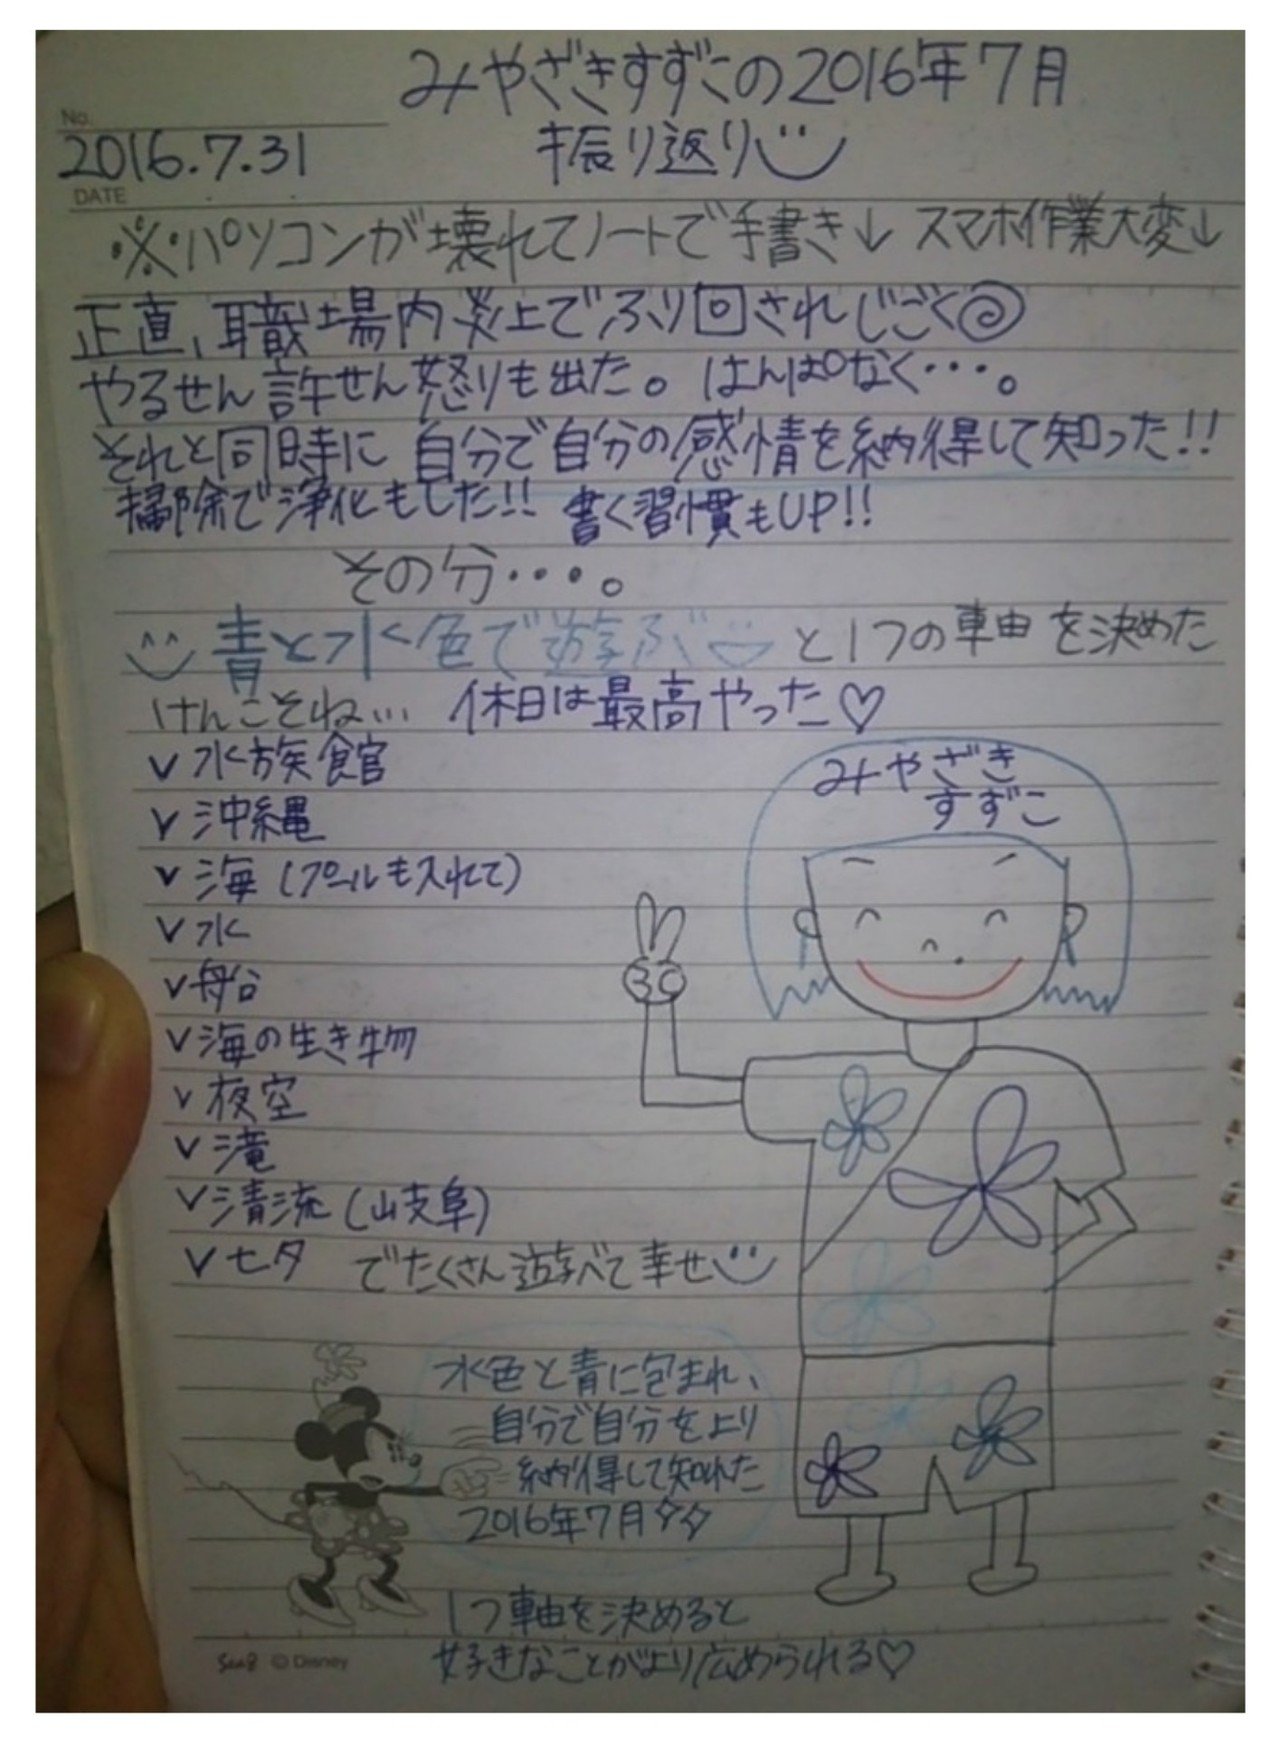 みやざきすずこの2016年7月
振り返り
No.
2016.7.31
DATE
※パソコンが壊れてノートで手書き↓ スマホ作業大変↓
正直、職場内炎上でふり回されじごく
やるせん許せん怒りも出た。はんぱなく…。
それと同時に 自分で自分の感情を納得して知った!!
掃除で浄化もした!! 書く習慣もUP!!
その分…。
青と水色で遊ぶ と1つの軸を決めた
けんこそね… 休日は最高やった♡
✓水族館
✓沖縄
✓海(プールも入れて)
✓水
✓船
✓海の生き物
✓夜空
✓滝
✓清流(岐阜)
✓七夕 でたくさん遊べて幸せ
みやざき
すずこ
水色と青に包まれ、
自分で自分をより
納得して知れた
2016年7月
1つ軸を決めると
好きなことがより広められる♡
© Disney